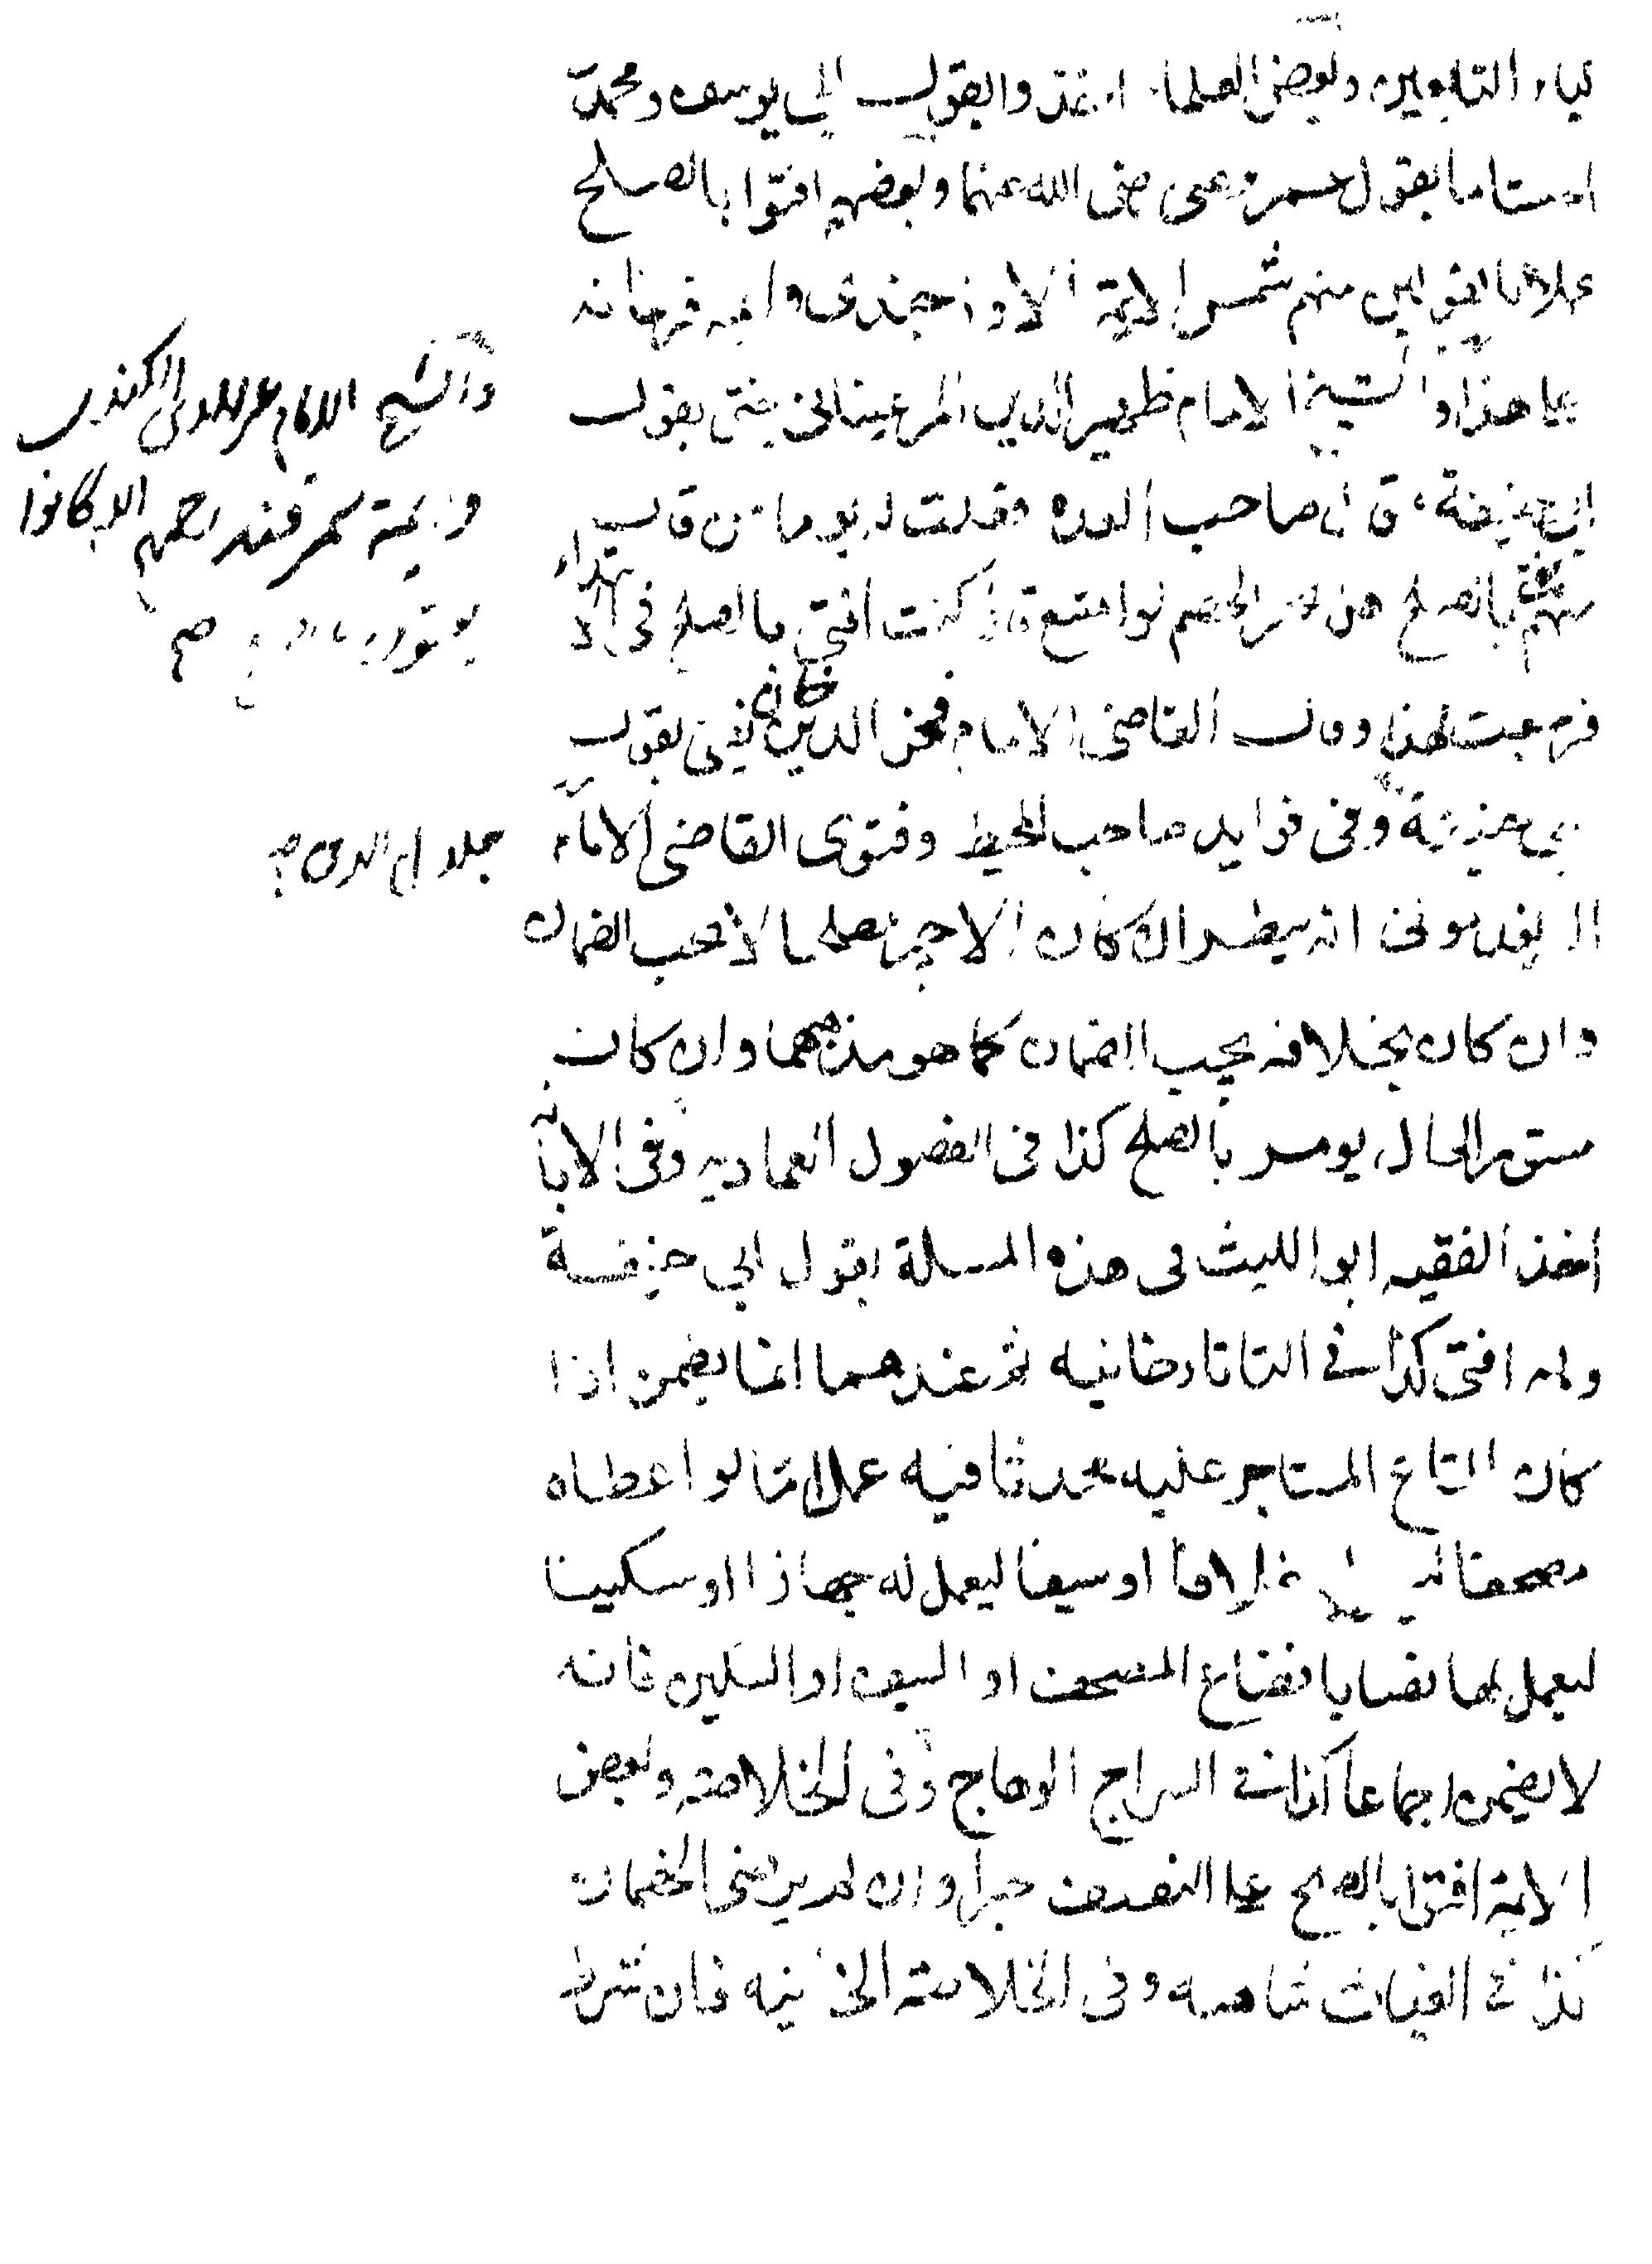 التابعين وبعض العلماء اخذوا بقول ابي يوسف ومحمد
بقول عمر وعلى رضى الله عنهما وبعضهم افتوا بالصلح
عملا بالقولين منهم شمس الائمة الاوزجندى وائمه فرغانه
على هذا والشيخ الامام ظهير الدين المرغينانى يفتى بقول
ابى حنيفة قال صاحب العده وقلت له يوما من قال
منهم يفتى بالصلح هل يجبر الخصم لو امتنع قال كنت افتى بالصلح فى الابتداء
فرجعت لهذا وقال القاضى الامام فخر الدين خان يفتى بقول
ابي حنيفة وفى فوايد صاحب المحيط وفتوى القاضى الامام
انه ينظر ان كان الاجير مصلحا لا يجب الضمان
وان كان بخلافه يجب الضمان كما هو مذهبهما وان كان
مستور الحال يومر بالصلح كذا فى الفصول العماديه وفى الابانه
اخذ الفقيه ابو الليث فى هذه المسلة بقول ابي حنيفة
وبه افتى كذا فى التاتارخانيه ثم عندهما انما يضمن اذا
كان المتاع المستاجر عليه محدثا فيه عملا اما لو اعطاه
مصحفا غلافا او سيفا ليعمل له جهازا او سكينا
ليعمل لها نصابا فضاع المصحف او السيف او السكين فانه
لا يضمن اجماعا كذا فى السراج الوهاج وفى الخلاصه وبعض
الائمة افتوا بالصلح على النصف جبرا وان لم يرض الخصمان
كذا فى وفى الخلاصة الخانيه فان شرط
والشيخ الامام الكندى
وايمة سمرقند رحمهم الله كانوا
يفتون بالصلح صح
جلال الدين